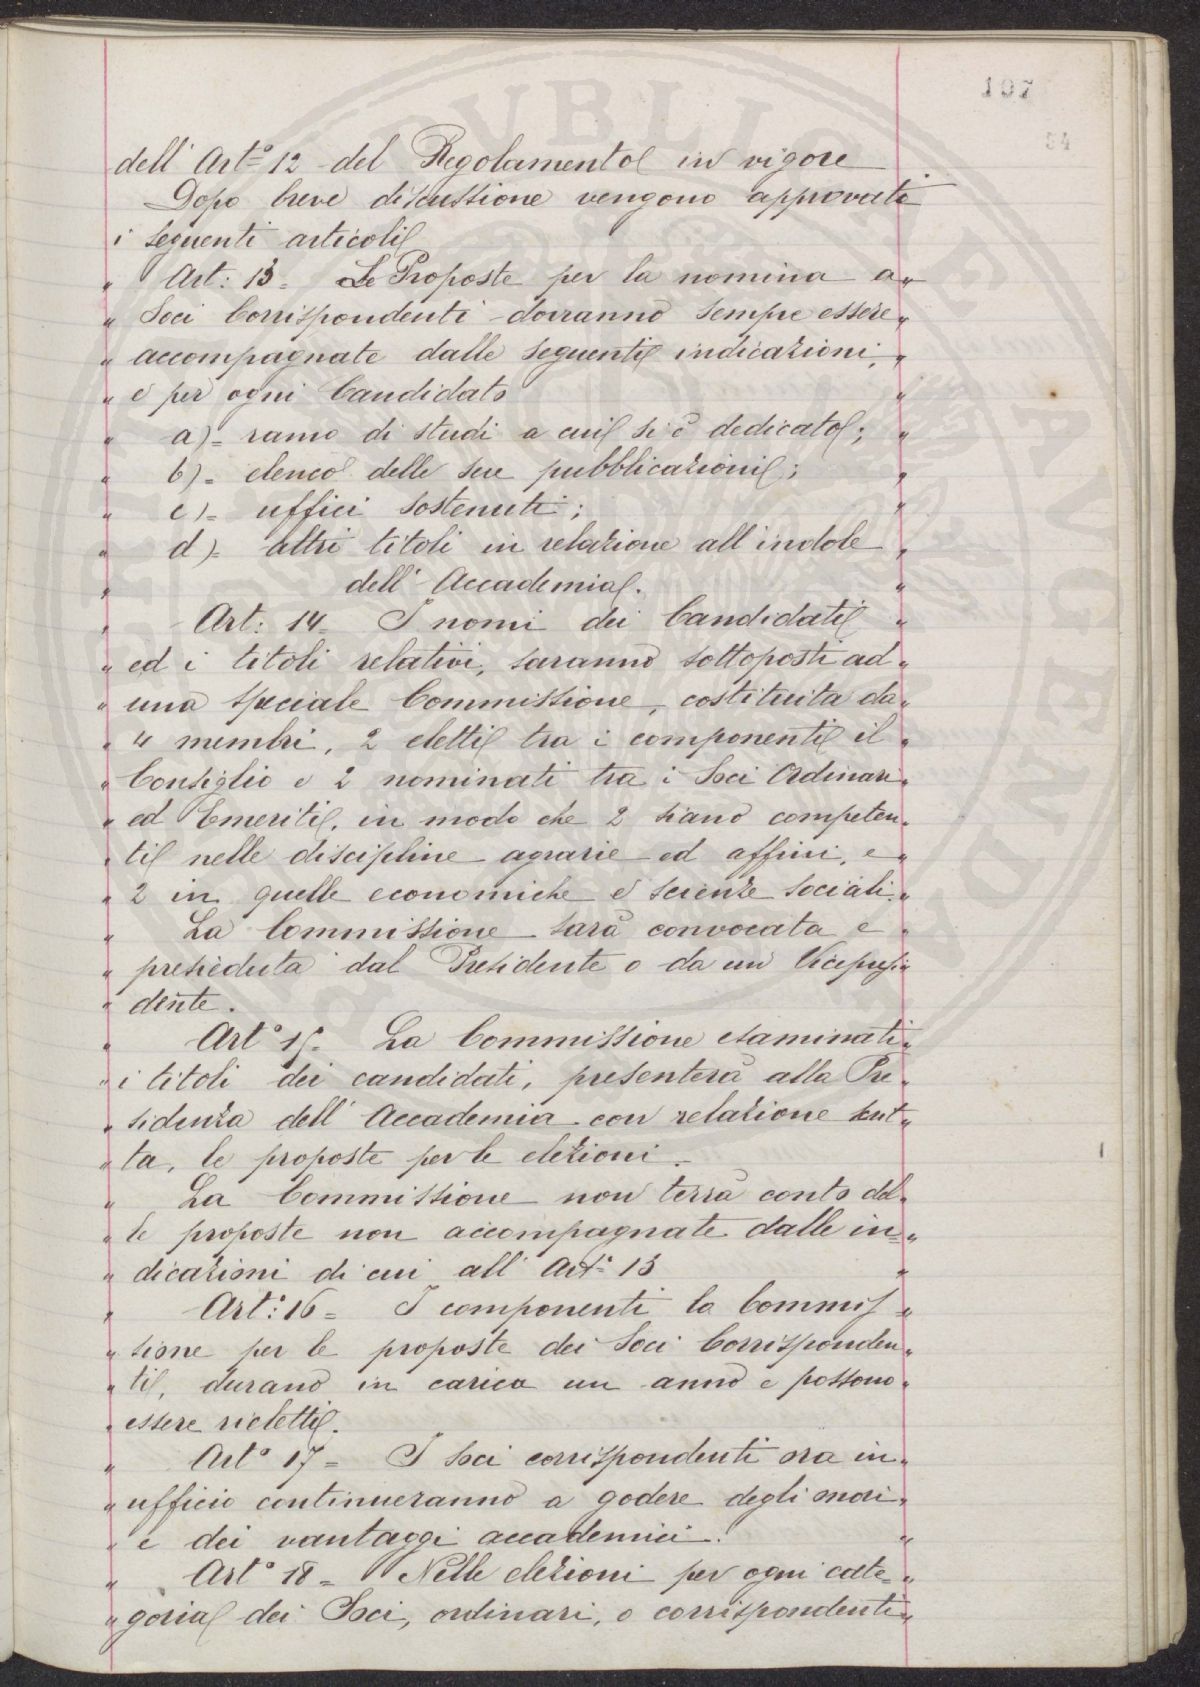 107
94
dell' Art.° 12 del Regolamento in vigore
Dopo breve discussione vengono approvati
i seguenti articoli
" Art: 13 = Le Proposte per la nomina a "
" Soci Corrispondenti dovranno sempre essere "
" accompagnate dalle seguenti indicazioni, "
" e per ogni Candidato "
" a) = ramo di studi a cui si è dedicato; "
" b) = elenco delle sue pubblicazioni; "
" c) = uffici sostenuti; "
" d) = altri titoli in relazione all'indole "
" dell'Accademia. "
" Art: 14 = I nomi dei Candidati "
" ed i titoli relativi, saranno sottoposti ad "
" una speciale Commissione, costituita da "
" 4 membri, 2 eletti tra i componenti il "
" Consiglio e 2 nominati tra i Soci Ordinari "
" ed Emeriti, in modo che 2 siano competen "
" ti nelle discipline agrarie ed affini, e "
" 2 in quelle economiche e scienze sociali. "
" La Commissione sarà convocata e "
" presieduta dal Presidente o da un Vicepresi "
" dente.
" Art° 15 = La Commissione esaminati "
" i titoli dei candidati, presenterà alla Pre "
" sidenza dell'Accademia con relazione scrit "
" ta, le proposte per le elezioni. "
" La Commissione non terrà conto del "
" le proposte non accompagnate dalle in= "
" dicazioni di cui all'Art° 13 "
" Art: 16 = I componenti la Commis "
" sione per le proposte dei Soci Corrisponden "
" ti, durano in carica un anno e possono "
" essere rieletti.
" Art° 17 = I soci corrispondenti ora in "
" ufficio continueranno a godere degli onori "
" e dei vantaggi accademici. "
" Art° 18 = Nelle elezioni per ogni cate= "
" goria dei Soci, ordinari, o corrispondenti "